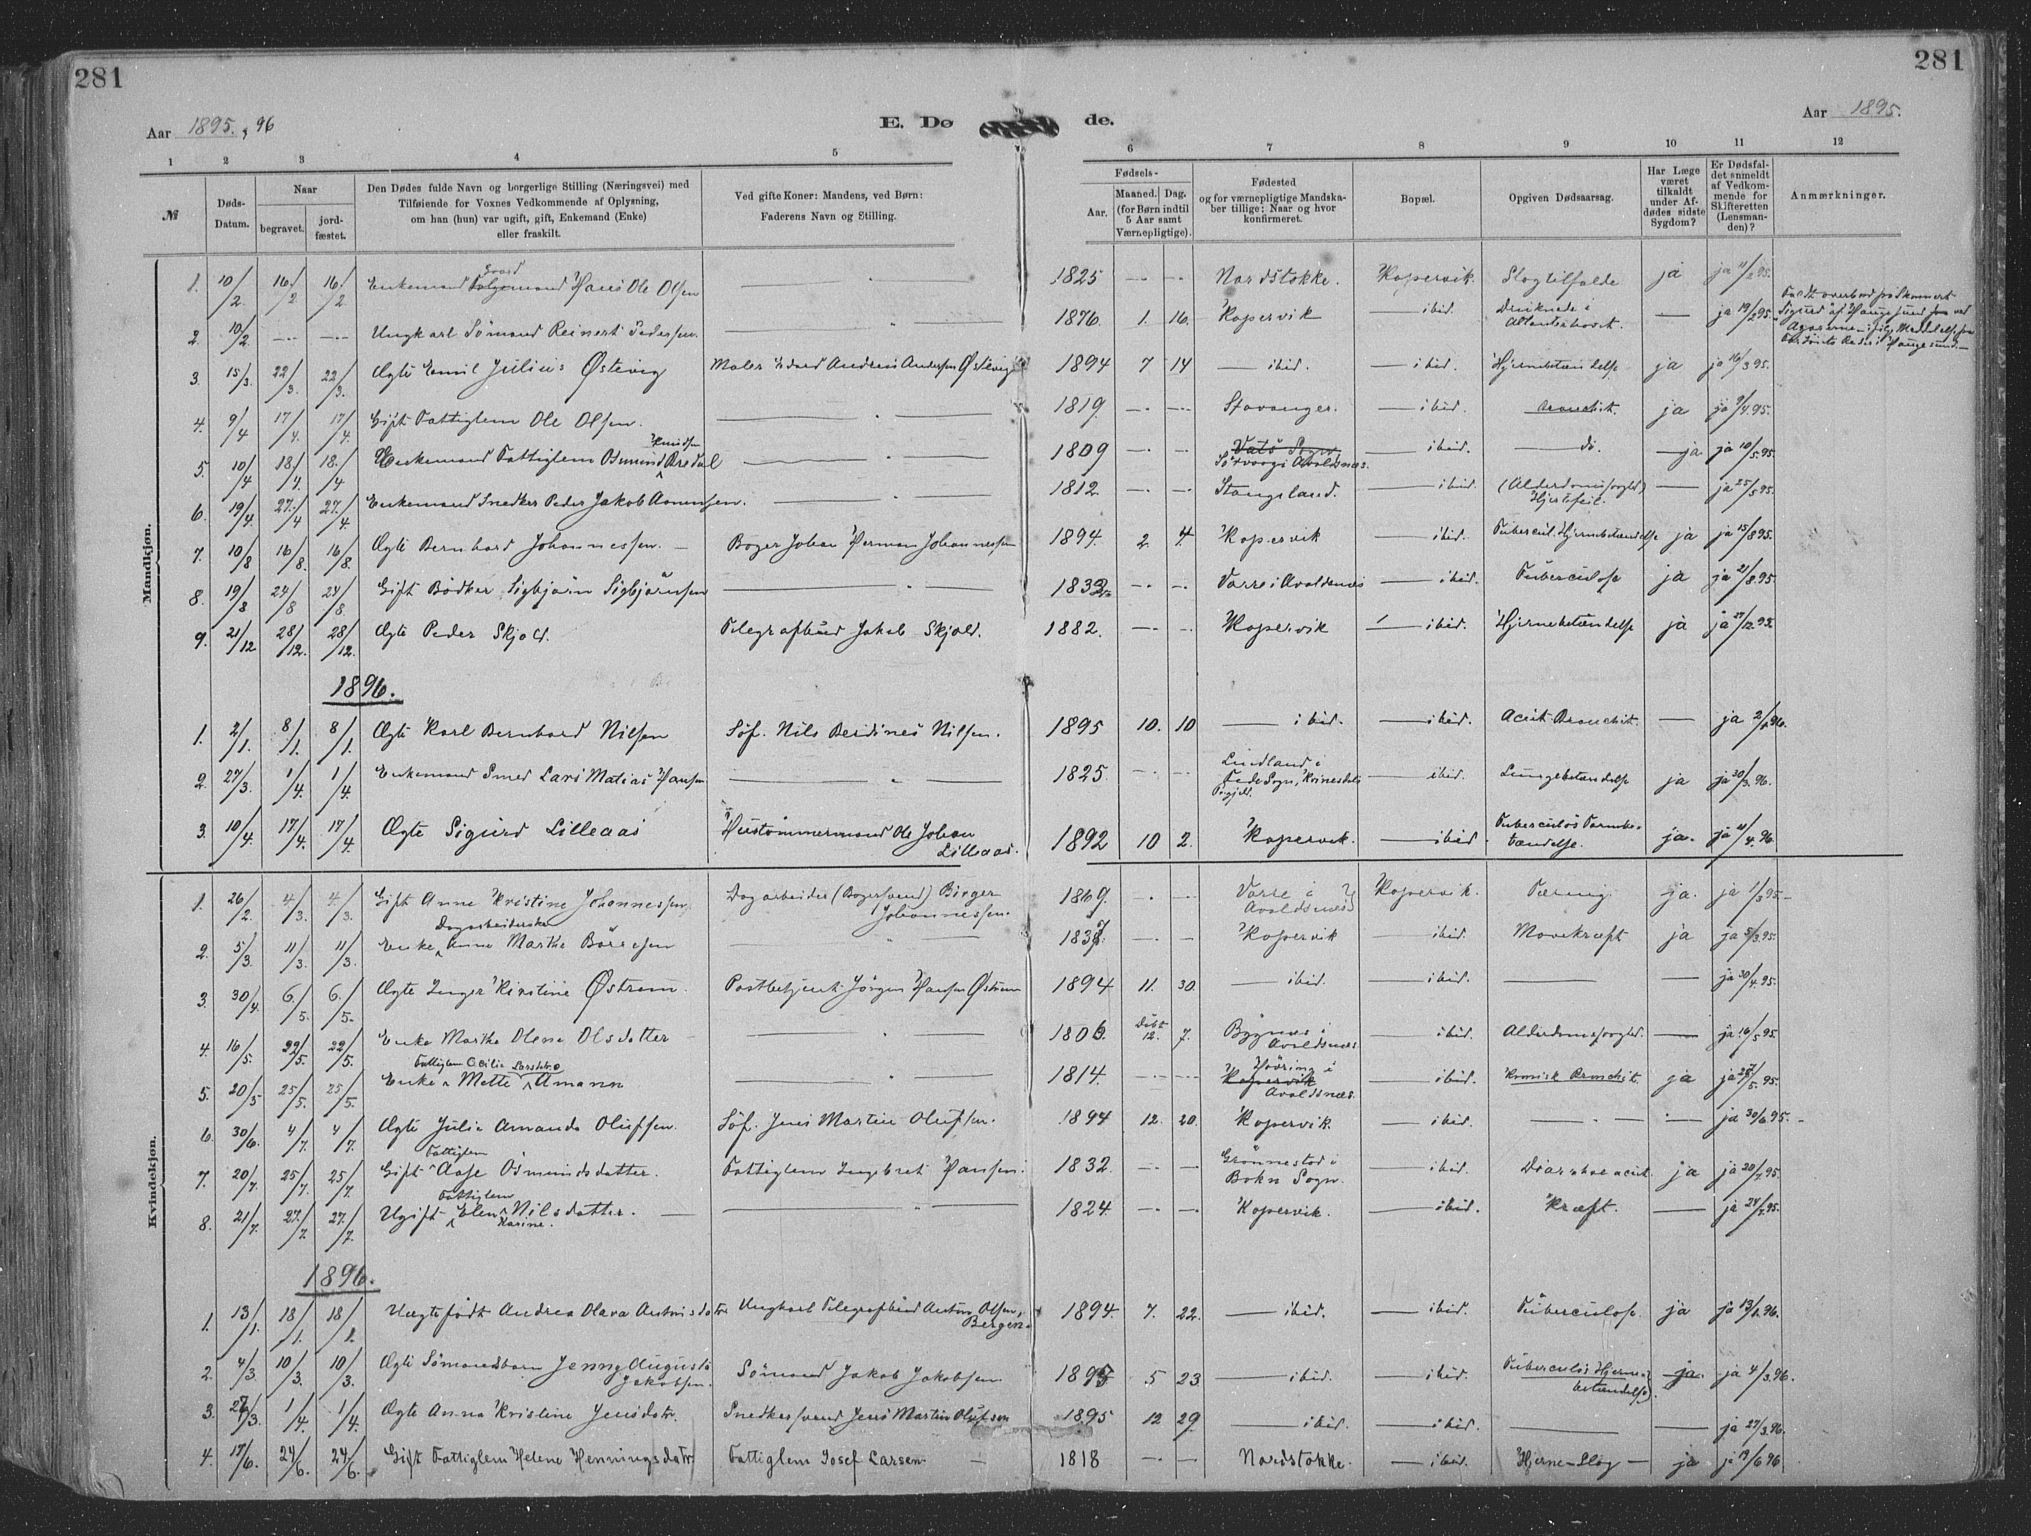 281
281
Aar 1895, 96
E. Dø
de.
Aar 1895.
1 2 3 4 5 6 7 8 9 10 11 12
№
Døds-Datum.
Naar
begravet.
jord-fæstet.
Den Dødes fulde Navn og borgerlige Stilling (Næringsvei) med
Tilføiende for Voxnes Vedkommende af Oplysning,
om han (hun) var ugift, gift, Enkemand (Enke)
eller fraskilt.
Ved gifte Koner: Mandens, ved Børn:
Faderens Navn og Stilling.
Fødsels-
Aar.
Maaned. Dag.
(for Børn indtil
5 Aar samt
Værnepligtige).
Fødested
og for værnepligtige Mandska-
ber tillige: Naar og hvor
konfirmeret.
Bopæl.
Opgiven Dødsaarsag.
Har Læge
været
tilkaldt
under Af-
dødes sidste
Sygdom?
Er Dødsfal-
det anmeldt
af Vedkom-
mende for
Skifteretten
(Lensman-
den)?
Anmærkninger.
Mandkjøn.
1. 10/2 16/2 16/2 Enkemand Hans Ole Olsen — " 1825 — — Nordstokke. Kopervik. Slagtilfælde ja ja 11/2 95.
2. 10/2 — — Ungkarl Sømand Reinert Pedersen — " 1876 1. 16. Kopervik — ibid. Druknede i Atlanterhavet. — ja 19/2 95
3. 15/3. 22/3 22/3. Ægte Emil Julius Østevig Maler Edvard Andreas Andersen Østevig 1894 7 14 — ibid. — ibid. Hjernebetændelse ja ja 16/3 95.
4. 9/4 17/4. 17/4. Gift Fattiglem Ole Olsen. — " — 1819 — — Stavanger. — ibid. Bronchit. ja ja 9/4. 95.
5. 10/4 18/4. 18/4 Enkemand Fattiglem Osmund Knudsen Bredal — " — 1809 — — Sørvaag i Avaldsnes. — ibid. — do — ja ja 10/5. 95
6. 19/4. 27/4 27/4. Enkemand Snedker Peder Jakob Aanensen. — " — 1812. — — Stangeland. — ibid. (Alderdomssvaghed) Hjertefeil. — ja 25/5 95.
7. 10/8 16/8. 16/8. Ægte Bernhard Johannessen. — Bager Johan Herman Johannessen 1894. 2. 4. Kopervik — ibid. Tubercul. Hjernebetændelse ja ja 15/8 95.
8. 19/8 24/8 24/8. Gift Bødker Sigbjørn Sigbjørnsen — " — 1832 — — Varre i Avaldsnes — ibid. Tuberculose ja ja 21/8. 95.
9. 21/12 28/12. 28/12. Ægte Peder Skjold. Telegrafbud Jakob Skjold. 1882. — — Kopervik — ibid. Hjernebetændelse ja ja 27/12. 95.
1896.
1. 2/1. 8/1. 8/1. Ægte Karl Bernhard Nilsen Søf. Nils Berdines Nilsen. 1895 10. 10 — ibid. — ibid. Acut Bronchit. — ja 2/1 96.
2. 27/3. 1/4. 1/4. Enkemand Smed Lars Matias Hansen — " — 1825. — — Lindland i Fede Sogn, Kvinesdals Prgjeld. — ibid. Lungebetændelse ja ja 30/3. 96.
3. 10/4. 17/4. 17/4. Ægte Sigurd Lilleaas Hustømmermand Ole Johan Lilleaas. 1892 10 2. Kopervik. — ibid. Tuberculøs Tarmbetændelse. ja. ja 11/4. 96.
Kvindekjøn.
1. 26/2. 4/3. 4/3. Gift Anne Kristine Johannessen, Dagarbeider (Bagersvend) Birger Johannessen. 1869. — — Varre i Avaldsnes Kopervik. Tæring. ja. ja 1/3 95.
2. 5/3. 11/3. 11/3. Enke Dagarbeiderske Anne Marthe Børresen " — 1837. — — Kopervik — ibid. Mavekræft ja ja 5/3. 95.
3. 30/4. 6/5. 6/5. Ægte Inger Kirstine Østrem. Postbetjent Jørgen Hansen Østrem 1894 11. 30. — ibid. — ibid. — — ja 30/4. 95.
4. 16/5. 22/5. 22/5. Enke Marthe Olene Olsdatter — " — 1806. Døbt 12. 7. Bygnes i Avaldsnes — ibid. Alderdomssvaghed. — ja 16/5 95.
5. 20/5 25/5. 25/5. Enke Fattiglem Mette Cecilie Larsdtr. Amann — " — 1814. — — Høvring i Avaldsnes. — ibid. Kronisk Bronchit. ja ja 25/5. 95.
6. 30/6. 4/7. 4/7. Ægte Julie Amanda Olufsen. Søf. Jens Martin Olufsen. 1894 12. 20. Kopervik. — ibid. — — ja 30/6. 95.
7. 20/7. 25/7. 25/7. Gift Fattiglem Aase Osmundsdatter. Fattiglem Ingbret Hansen. 1832. — — Grønnestad i Bokn Sogn. — ibid. Diarrhoe acut. ja ja 20/7. 95.
8. 21/7. 27/7. 27/7. Ugift Fattiglem Elen Karine Nilsdatter. — — " — 1824. — — Kopervik. — ibid. Kræft. — ja 24/7. 95.
1896.
1. 13/1. 18/1. 18/1. Uægtefødt Andrea Olava Antonisdatter Ungkarl Telegrafbud Anton Olsen, Bergen. 1894. 7. 22. — ibid. — ibid. Tuberculose. ja ja 13/1. 96.
2. 4/3. 10/3. 10/3. Ægte Sømandsbarn Jenny Augusta Jakobsen. Sømand Jakob Jakobsen 1895 5 23 — ibid. — ibid. Tuberculøs Hjernebetændelse ja. ja 4/3. 96.
3. 27/3. 1/4. 1/4. Ægte Anna Kristine Jensdatr. Snedkersvend Jens Martin Olufsen 1895 12 29 — ibid. — ibid. — — ja 27/3. 96.
4. 17/6. 24/6. 24/6. Gift Fattiglem Helene Henningsdatr Fattiglem Josef Larsen — 1818 — — Nordstokke. — ibid. Hjerne-Slag — ja ja 19/6 96